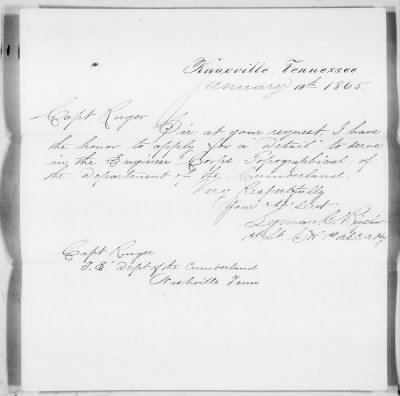 Knoxville Tennessee
January 10th 1865.
Capt Ruger
Sir, at your request, I have
the honor to apply for a "detail" to serve
in the Engineer Corps Topographical, of
the department of the Cumberland.
Very Respectfully
Your Obt Servt
Lyman
1st Lt
Capt Ruger
T. E. Dept of the Cumberland
Nashville Tenn